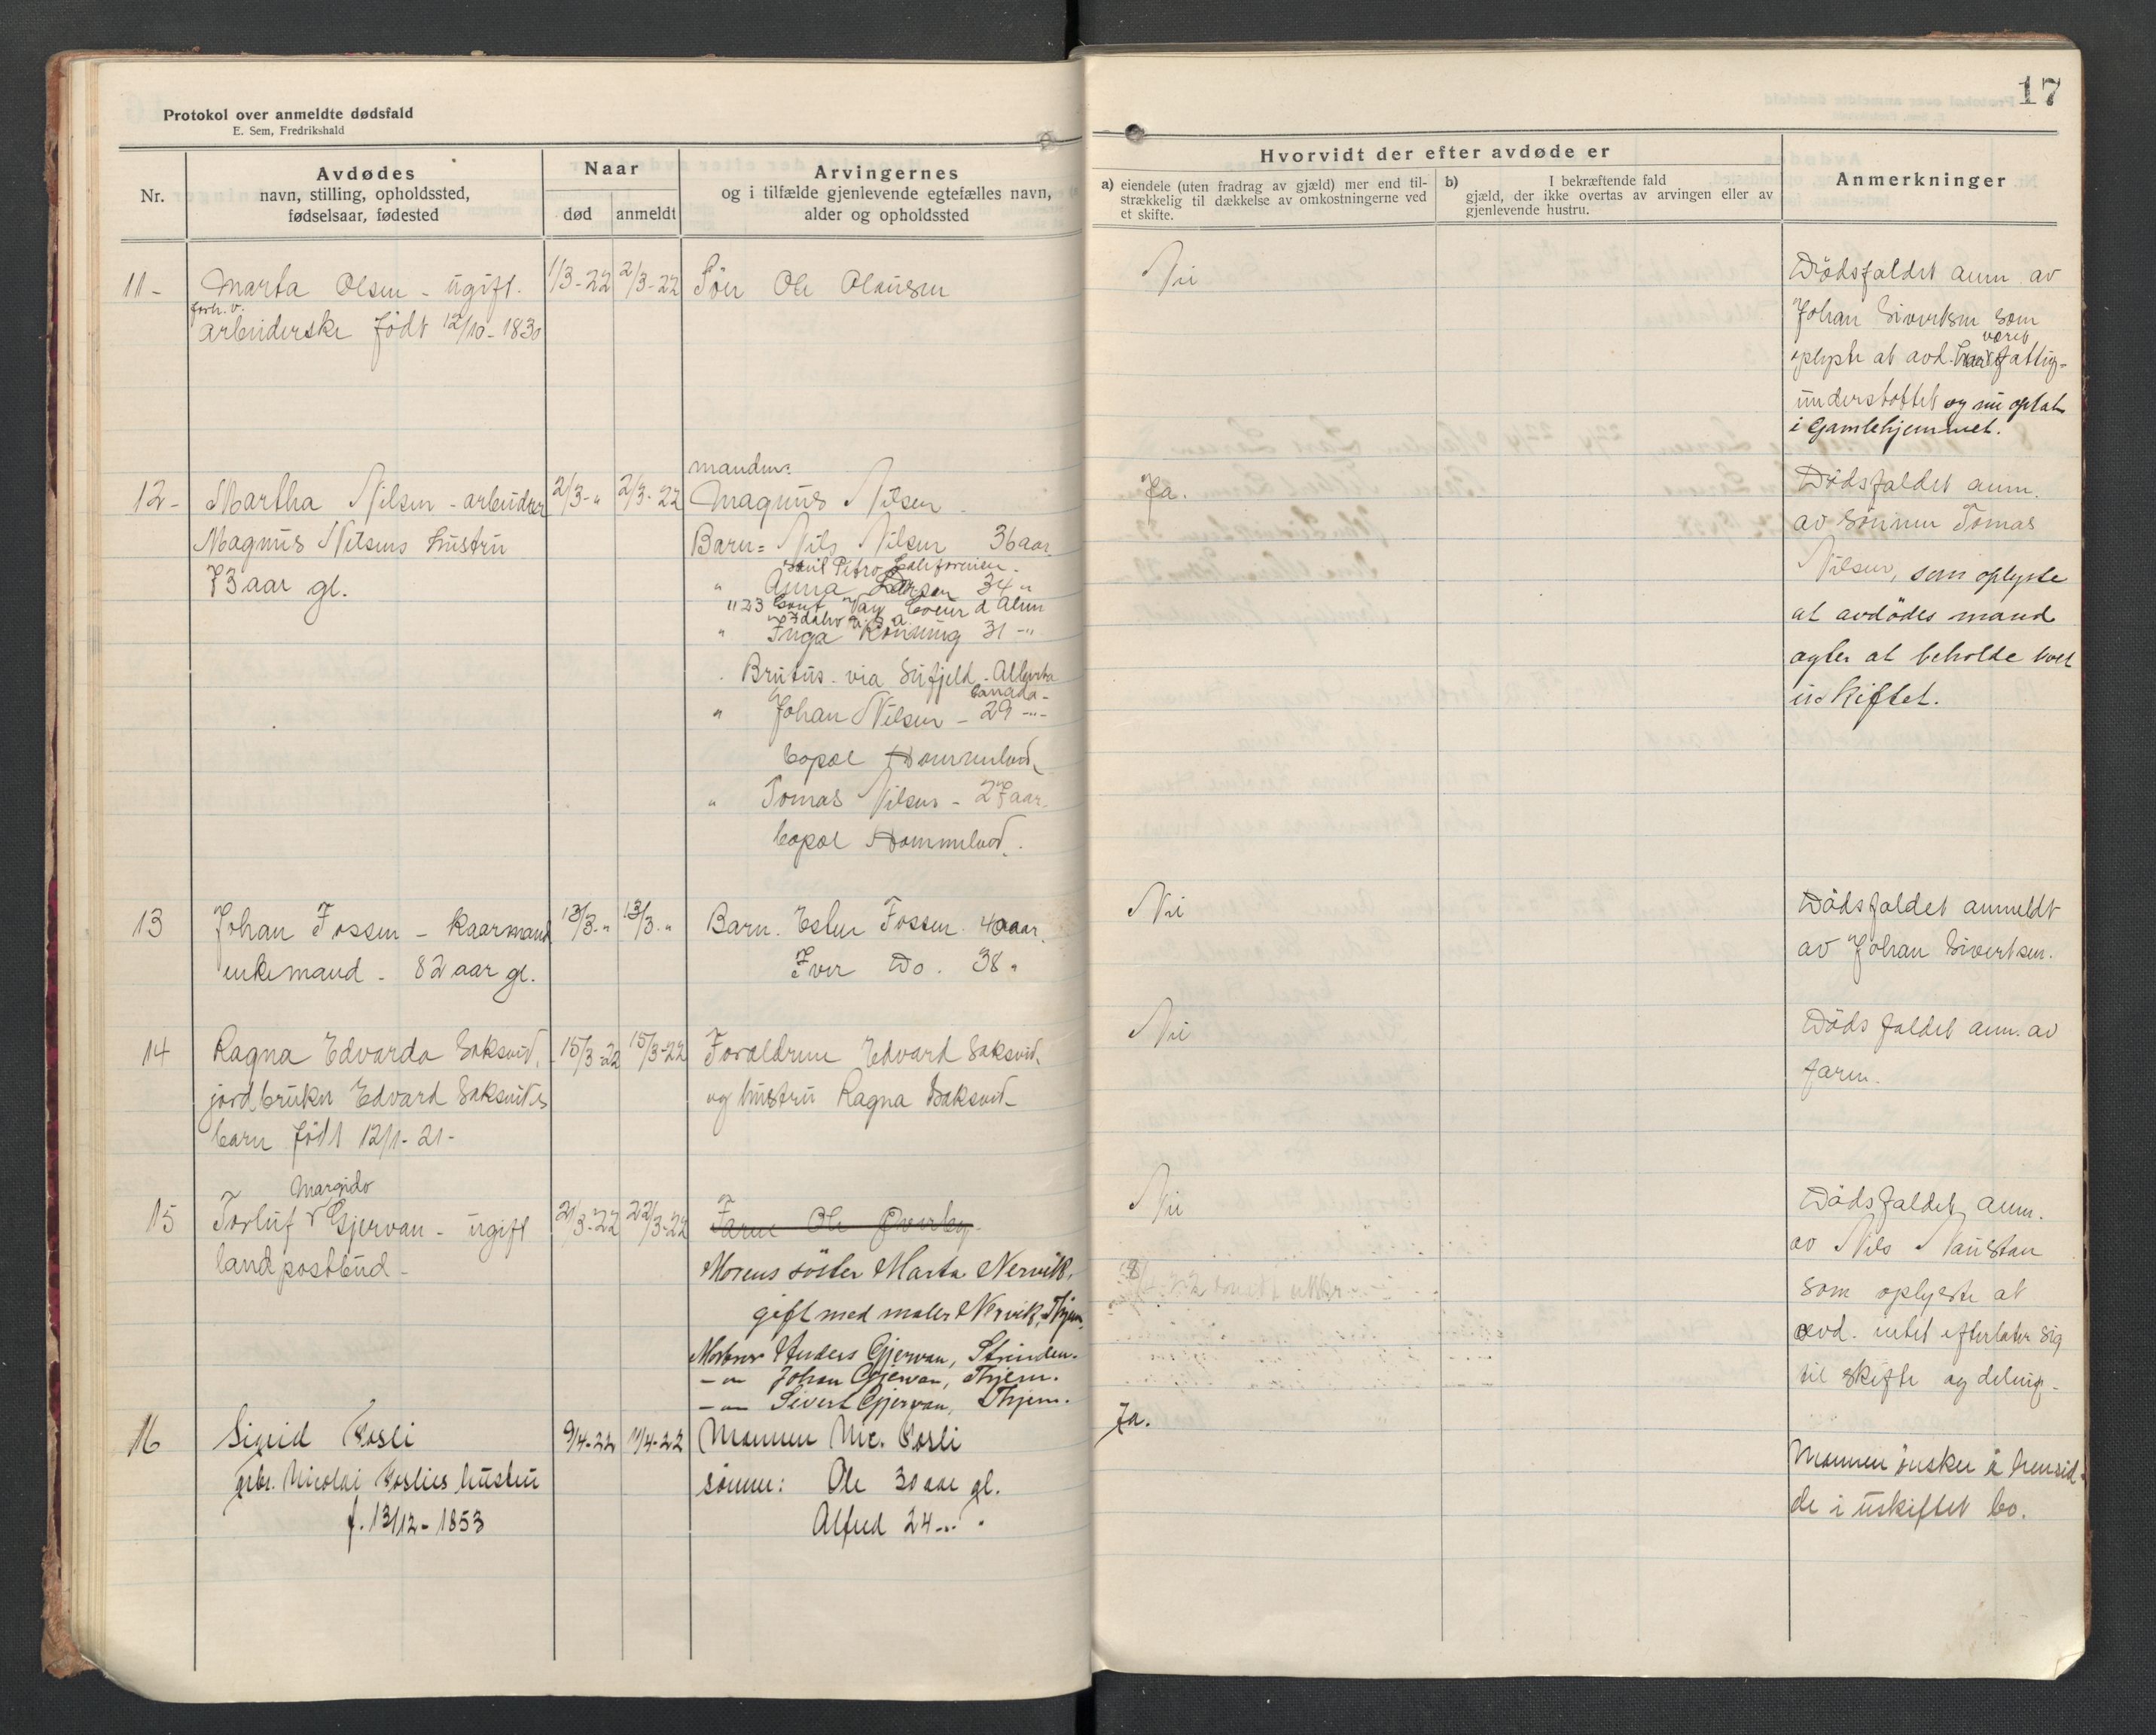 Protokol over anmeldte dødsfald
E. Sem, Fredrikshald
Nr.
Avdødes
navn, stilling, opholdssted,
fødselsaar, fødested
Naar
død
anmeldt
Arvingernes
og i tilfælde gjenlevende egtefælles navn,
alder og opholdssted
11 -
Marta Olsen - ugift.
forh. v.
arbeiderske født 12/10 - 1830
1/3 - 22
2/3 - 22
Søn Ole Olausen
12 -
Martha Nilsen - arbeider
Magnus Nilsens hustru
73 aar gl.
2/3 - "
2/3 - 22
manden:
Magnus Nilsen -
Barn = Nils Nilsen 36 aar
Petro Californien.
" Anna Larsen 34 "
1123 Way Coeur d Alen
Idaho U.S.A.
" Inga Rönning 31 - "
Brutus - via - Alberta
Canada -
" Johan Nilsen - 29 - " -
bopæl Hommelvik
" Tomas Nilsen - 27 aar.
bopæl Hommelvik.
13
Johan Fossen - kaarmand
enkemand - 82 aar gl.
13/3 - "
13/3 - "
Barn. Fossen. 40 aar.
Iver Do. 38 "
14
Ragna Edvarda Saksvik,
jordbruker Edvard Saksviks
barn født 12/1 - 21 -
15/3 - 22
15/3 - 22
Forældrene Edvard Saksvik
og hustru Ragna Saksvik
15
Margido
Torluf Gjervan - ugift
landpostbud -
21/3 - 22
22/3 - 22
Faren Ole Øverby.
Morens söster Marta Nervik,
gift med maler Nervik, Thjem.
Morbror Anders Gjervan, Strinden.
- " - Johan Gjervan, Thjem.
- " - Sivert Gjervan, Thjem.
16
Sigrid Rosli
grbr. Nicolai Roslies hustru
f. 13/12 - 1853
9/4 - 22
11/4 - 22
Mannen Nic. Rosli
sønner: Ole 30 aar gl.
Alfred 24 - " - "
17
Hvorvidt der efter avdøde er
a) eiendele (uten fradrag av gjæld) mer end til-
strækkelig til dækkelse av omkostningerne ved
et skifte.
b) I bekræftende fald
gjæld, der ikke overtas av arvingen eller av
gjenlevende hustru.
Anmerkninger
Nei
Dødsfaldet anm. av
Johan Sivertsen som
været
oplyste at avd. har fattig-
understøttet og nu optat
i Gamlehjemmet.
Ja.
Dødsfaldet anm.
av sønnen Tomas
Nilsen, som oplyste
at avdødes mand
agter at beholde boet
uskiftet.
Nei
Dødsfaldet anmeldt
av Johan Sivertsen.
Nei
Dødsfaldet anm. av
faren.
Nei
Dødsfaldet anm.
av Nils Naustan
som oplyste at
avd. intet efterlater sig
til skifte og deling -
Ja.
Mannen ønsker å hensid-
de i uskiftet bo.